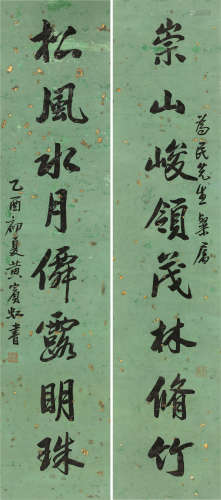 崇山峻領茂林脩竹
為民先生粲屬
松風水月僊露明珠
乙酉初夏黃賓虹書